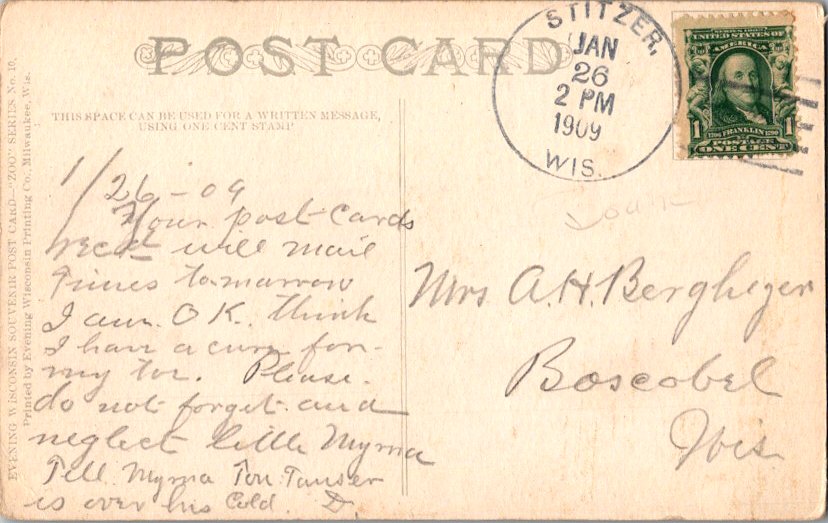 POST CARD
THIS SPACE CAN BE USED FOR A WRITTEN MESSAGE,
USING ONE CENT STAMP
EVENING WISCONSIN SOUVENIR POST CARD—"ZOO" SERIES No. 10.
Printed by Evening Wisconsin Printing Co., Milwaukee, Wis.
STITZER,
JAN
26
2 PM
1909
WIS.
SERIES 1902
UNITED STATES OF
AMERICA
1 FRANKLIN 1
POSTAGE
ONE CENT
1/26-09
Your post cards
recd will mail
Times tomarrow
I am. O K. think
I have a cure for
my toe. Please.
do not forget and
neglect little Myrna
Tell Myrna Tom
is over his Cold. D.
Mrs A.H. Bergheger
Boscobel
Wis